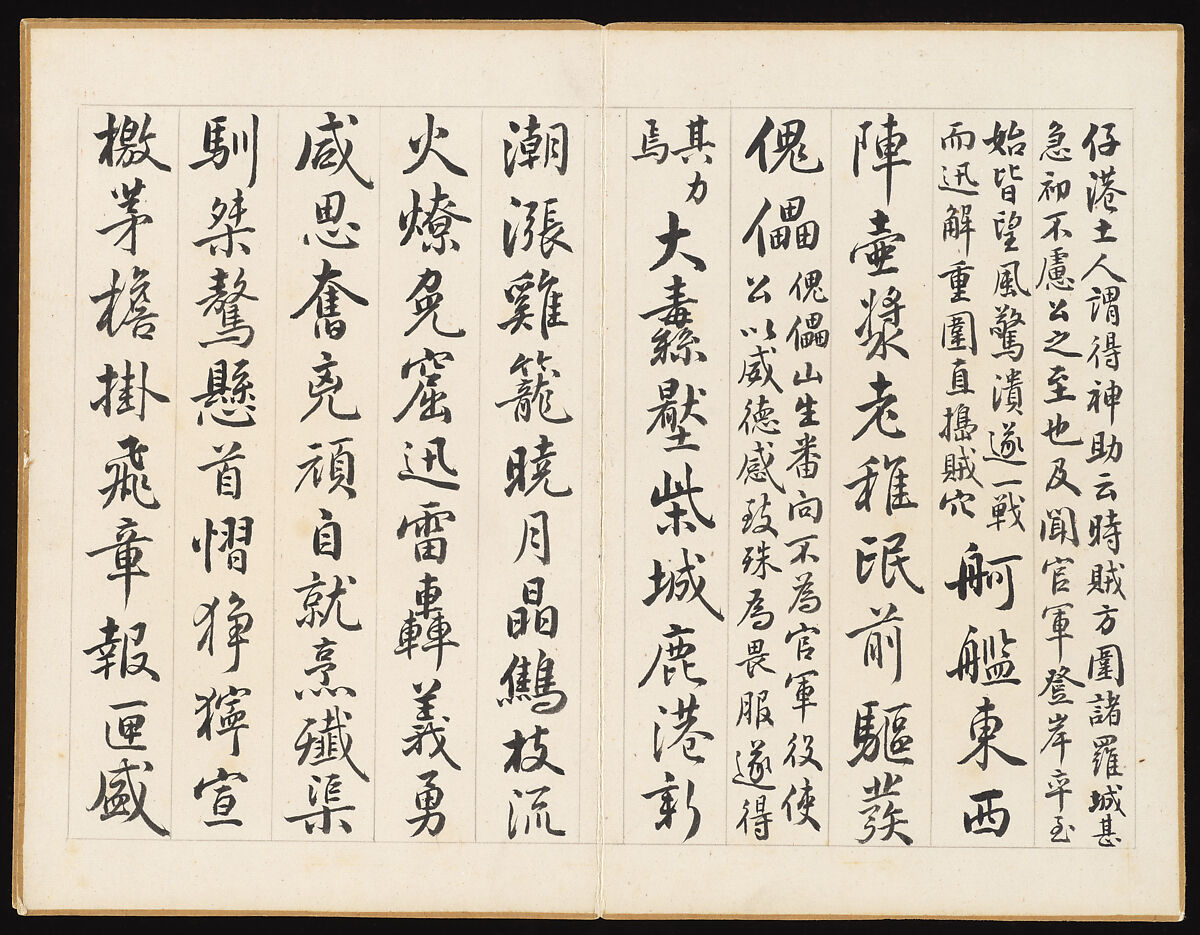 仔港土人謂得神助云時賊方圍諸羅城甚
急初不慮公之至也及聞官軍登岸卒至
始皆望風驚潰遂一戰
而迅解重圍直搗賊穴
舸艦東西
陣壺漿老稚氓前驅發
傀儡
傀儡山生番向不為官軍役使
公以威德感致殊為畏服遂得
其力
焉
大纛縣壓柴城鹿港新
潮漲雞籠曉月晶鷦枝流
火燎兔窟迅雷轟義勇
咸思奮兇頑自就烹殲渠
馴桀驁懸首慴猙獰宣
檄茅檐掛飛章報匣盛